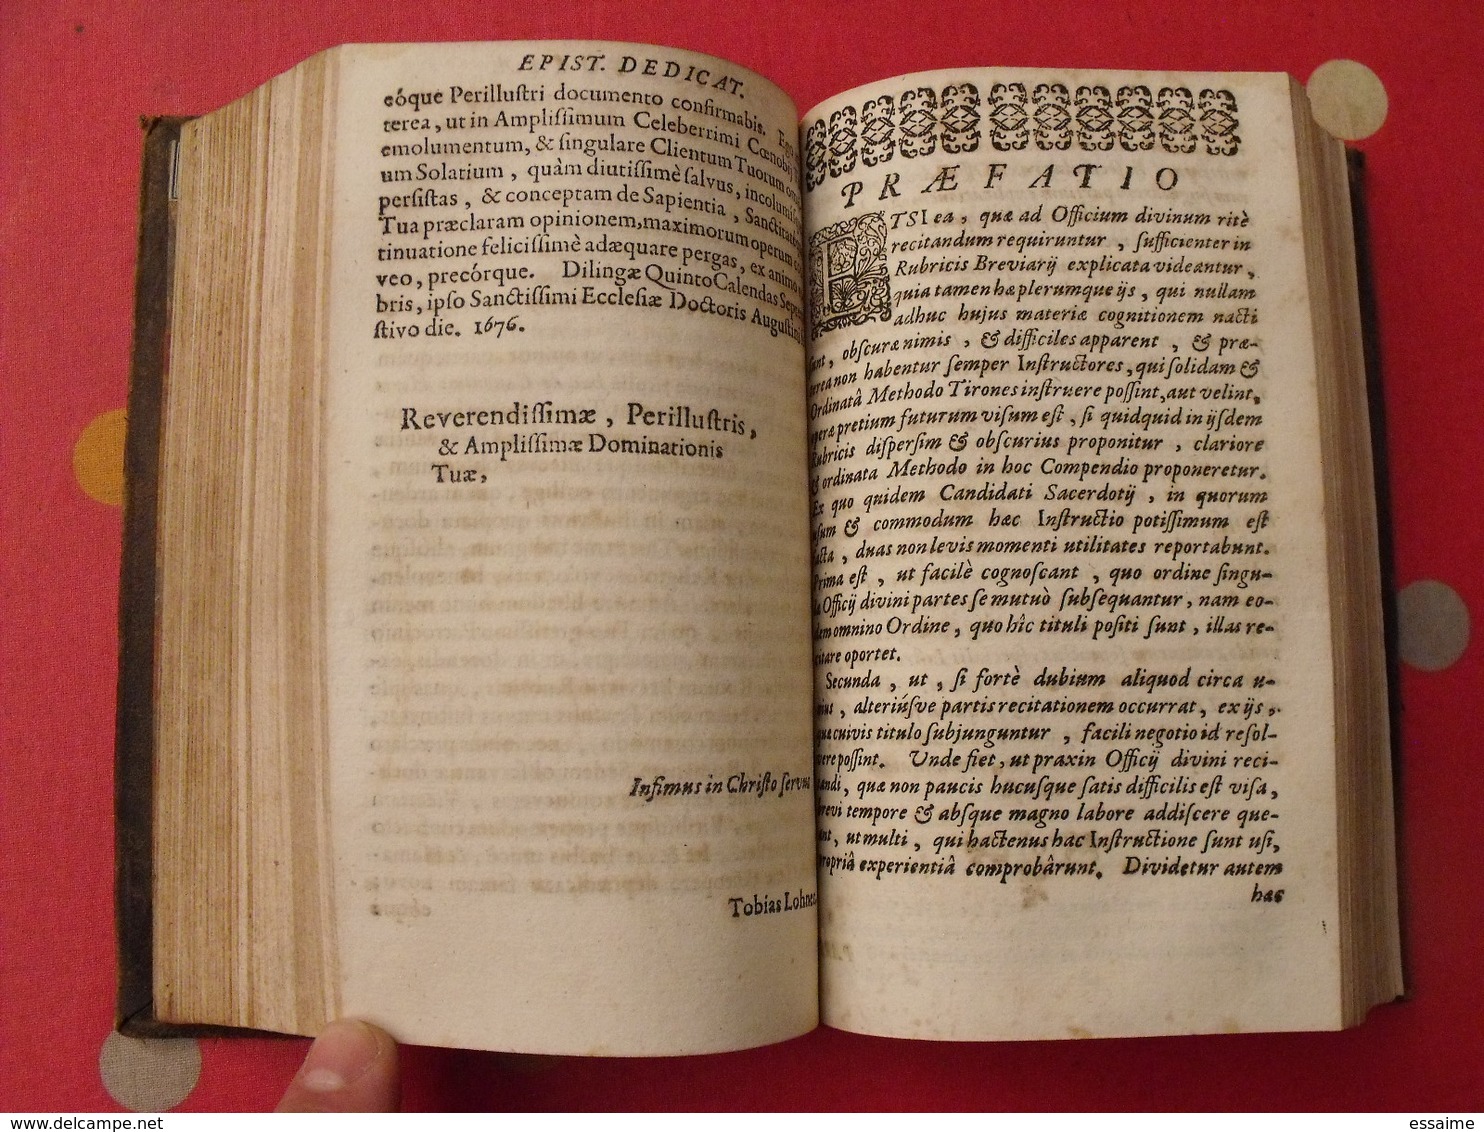 EPIST. DEDICAT.
eóque Perillustri documento confirmabis. Ego
terea, ut in Amplissimum Celeberrimi Cœnobij
emolumentum, & singulare Clientum Tuorum
um Solatium, quàm diutissimè salvus, incolumis
persistas, & conceptam de Sapientia, Sanctitate
Tua præclaram opinionem, maximorum operum
tinuatione felicissimè adæquare pergas, ex animo
veo, precórque. Dilingæ Quinto Calendas Sept
bris, ipso Sanctissimi Ecclesiæ Doctoris Augustini
stivo die. 1676.
Reverendissimæ, Perillustris,
& Amplissimæ Dominationis
Tuæ,
Infimus in Christo servus
Tobias Lohner
PRÆFATIO
ETSI ea, quæ ad Officium divinum ritè
recitandum requiruntur, sufficienter in
Rubricis Breviarij explicata videantur,
quia tamen hæ plerumque ijs, qui nullam
adhuc hujus materiæ cognitionem nacti
sunt, obscuræ nimis, & difficiles apparent, & præ-
terea non habentur semper Instructores, qui solidam &
Ordinatâ Methodo Tirones instruere possint, aut velint,
operæ pretium futurum visum est, si quidquid in ijsdem
Rubricis dispersim & obscurius proponitur, clariore
& ordinata Methodo in hoc Compendio proponeretur.
Ex quo quidem Candidati Sacerdotij, in quorum
usum & commodum hæc Instructio potissimum est
facta, duas non levis momenti utilitates reportabunt.
Prima est, ut facilè cognoscant, quo ordine singu-
læ Officij divini partes se mutuò subsequantur, nam eo-
dem omnino Ordine, quo hîc tituli positi sunt, illas re-
citare oportet.
Secunda, ut, si fortè dubium aliquod circa u-
nius, alteriúsve partis recitationem occurrat, ex ijs,
quæ cuivis titulo subjunguntur, facili negotio id resol-
vere possint. Unde fiet, ut praxin Officij divini reci-
tandi, quæ non paucis hucusque satis difficilis est visa,
brevi tempore & absque magno labore addiscere que-
ant, ut multi, qui hactenus hac Instructione sunt usi,
propriâ experientiâ comprobârunt. Dividetur autem
hæc
www.delcampe.net
essaime